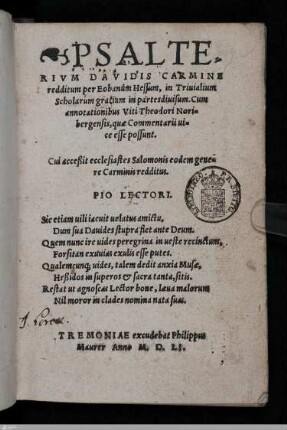 PSALTE-
RIVM DAVIDIS CARMINE
redditum per Eobanum Hessum, in Triuialium
Scholarum gratiam in partes diuisum. Cum
annotationibus Viti Theodori Nori-
bergensis, quæ Commentarii ui-
ce esse possunt.
Cui accessit ecclesiastes Salomonis eodem gene-
re Carminis redditus.
PIO LECTORI.
Sic etiam uili iacuit uelatus amictu,
Dum sua Dauides stupra flet ante Deum.
Quem nunc ire uides peregrina in ueste recinctum,
Forsitan exuuias exulis esse putes.
Qualemcunq; uides, talem dedit anxia Musæ,
in superos & sacra tanta, sitis.
Restat ut agnoscas Lector bone, læua malorum
Nil moror in clades nomina nata suas.
TREMONIAE excudebat Philippus
Maurer Anno M. D. LI.